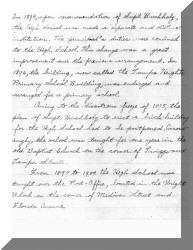 In 1893, upon recommendation of Supt. Buchholz,
the High School was made a separate and distinct
institution. The principal's duties were confined
to the High School. This change was a great
improvement over the previous arrangement. In
1894, the building, now called the Tampa Heights
Primary School Building, was enlarged and
arranged for a primary school.
Owing to the disastrous freeze of 1895, the
plan of Supt. Buchholz to erect a brick building
for the High School had to be postponed, accord-
ingly, the school was taught for one year in the
old Baptist Church on the corner of Twiggs and
Tampa streets.
From 1897 to 1902 the High School was
taught over the Post-Office, located in the Wright
Block on the corner of Madison Street and
Florida Avenue.